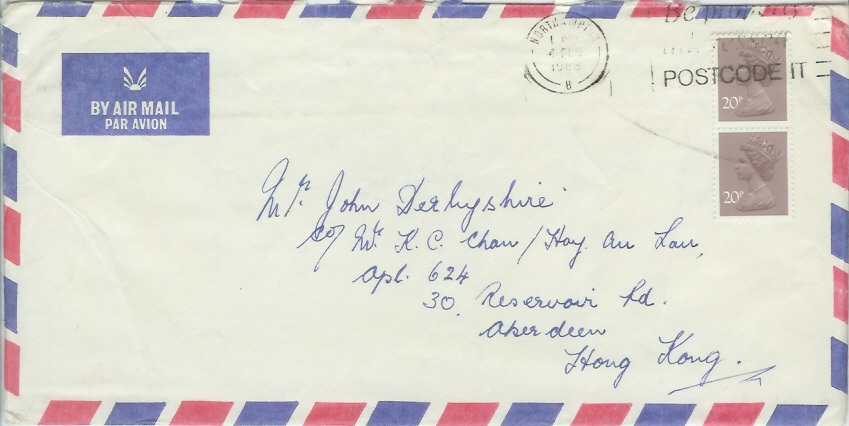 Be properly
POSTCODE IT
NORTHAMPTON
1983
B
BY AIR MAIL
PAR AVION
20P
20P
Mr. John Derbyshire
c/o Mr K. C. Chan / Hoy An Lau,
Apt. 624
30. Reservoir Rd.
Aberdeen
Hong Kong.